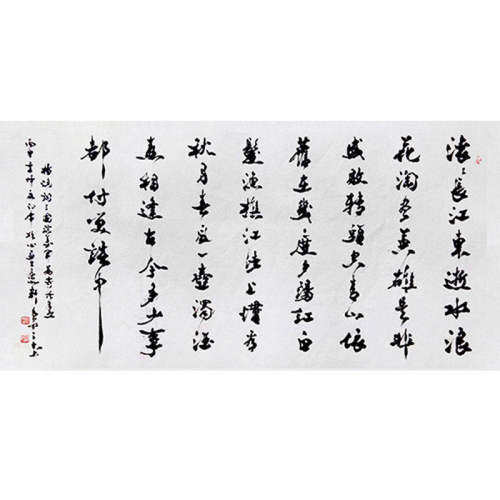 滚々长江东逝水浪
花淘尽英雄是非
成败转头空青山依
旧在几度夕阳红白
发渔樵江渚上惯看
秋月春风一壶浊酒
喜相逢古今多少事
都付笑谈中